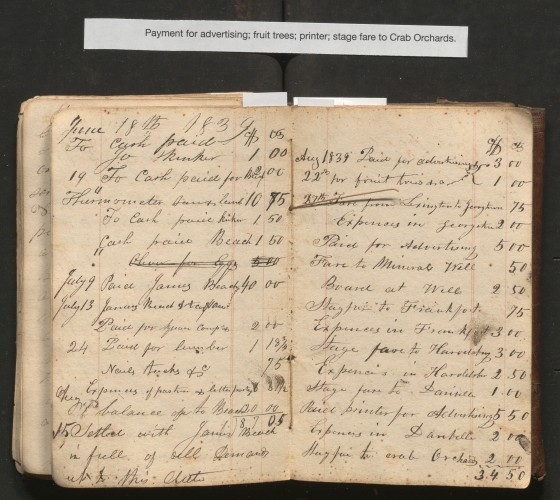 Payment for advertising; fruit trees; printer; stage fare to Crab Orchards.
June 18th 1839 $ cts
To Cash paid
Jo Skinker 1 00
19 To Cash paid for 00
Thurmometer 10 75
To Cash paid 1 50
" Cash paid Beach 1 50
July 9 Paid James Beach 40 00
July 13 James Beach
Paid for 2 00
24 Paid for lumber 1 18¾
Nails tacks &c 75
Aug Expences of
balance up to Beach 00
15 Settled with James Beach
in full of all Demands
up to this date
$ cts
Aug 1839 Paid for advertising 3 00
22nd for fruit trees 1 00
27th Fare from Lexington to Georgetown 75
Expences in Georgetown 2 00
Paid for Advertising 5 00
Fare to Mineral Well 50
Board at Well 2 50
Stage fair to Frankfort 75
Expences in Frankfort 3 00
Stage fare to Harodsburg 3 00
Expences in Harodsburg 2 50
Stage fare to Danville 1 00
Paid printer for Advertising 5 50
Expences in Danville 2 00
Stage fair to crab Orchards 2 00
34 50